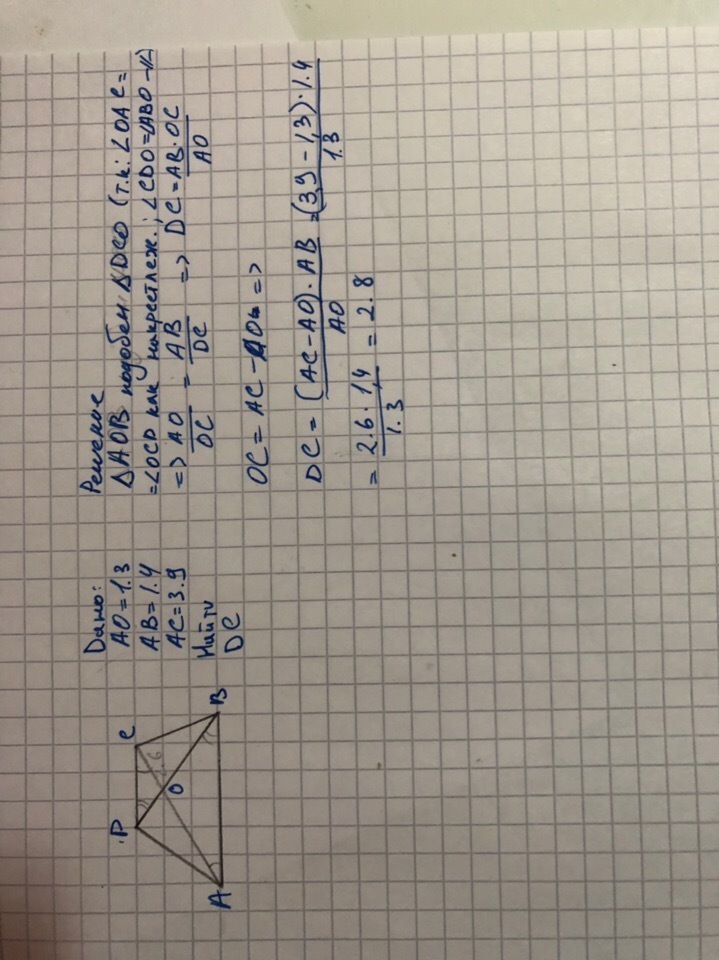 D
C
2.6
O
A
B
Дано:
AO = 1.3
AB = 1.4
AC = 3.9
Найти
DC
Решение
△AOB подобен △DCO (т.к: ∠OAC =
= ∠OCD как накрестлеж.; ∠CDO = ∠ABO -//)
=> AO/OC = AB/DC => DC = AB·OC/AO
OC = AC - AO =>
DC = (AC - AO)·AB/AO = (3,9 - 1,3)·1.4/1.3
= 2.6·1,4/1.3 = 2.8